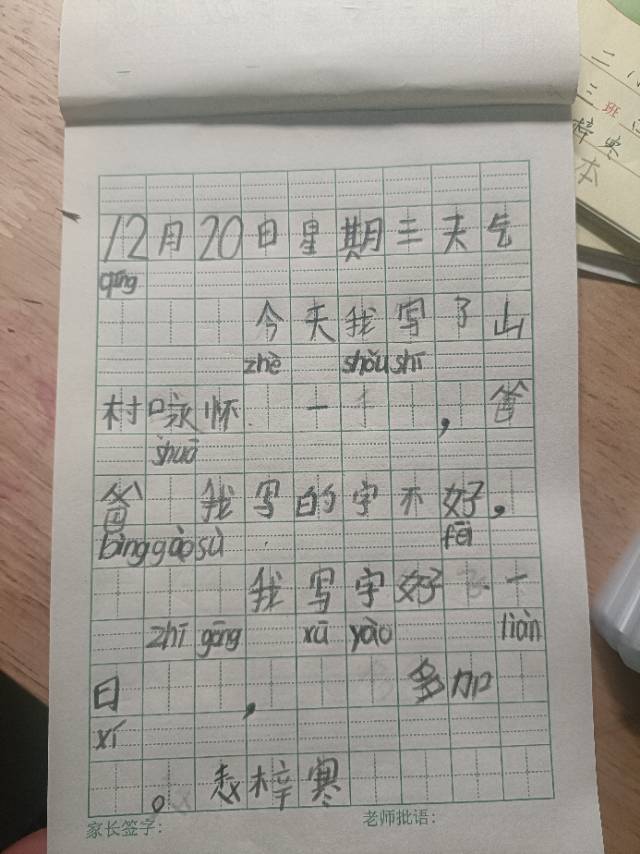 12月20日星期三天气
qíng
今天我写了山
zhè shǒu shī
村咏怀 一 ，爸
shuō
爸 我写的字不好，
bìng gào sù fēi
我写字好 一
zhī gōng xū yào liàn
日 ， 多加
xí
。赵梓寒
家长签字： 老师批语：
二
三班
梓寒
本